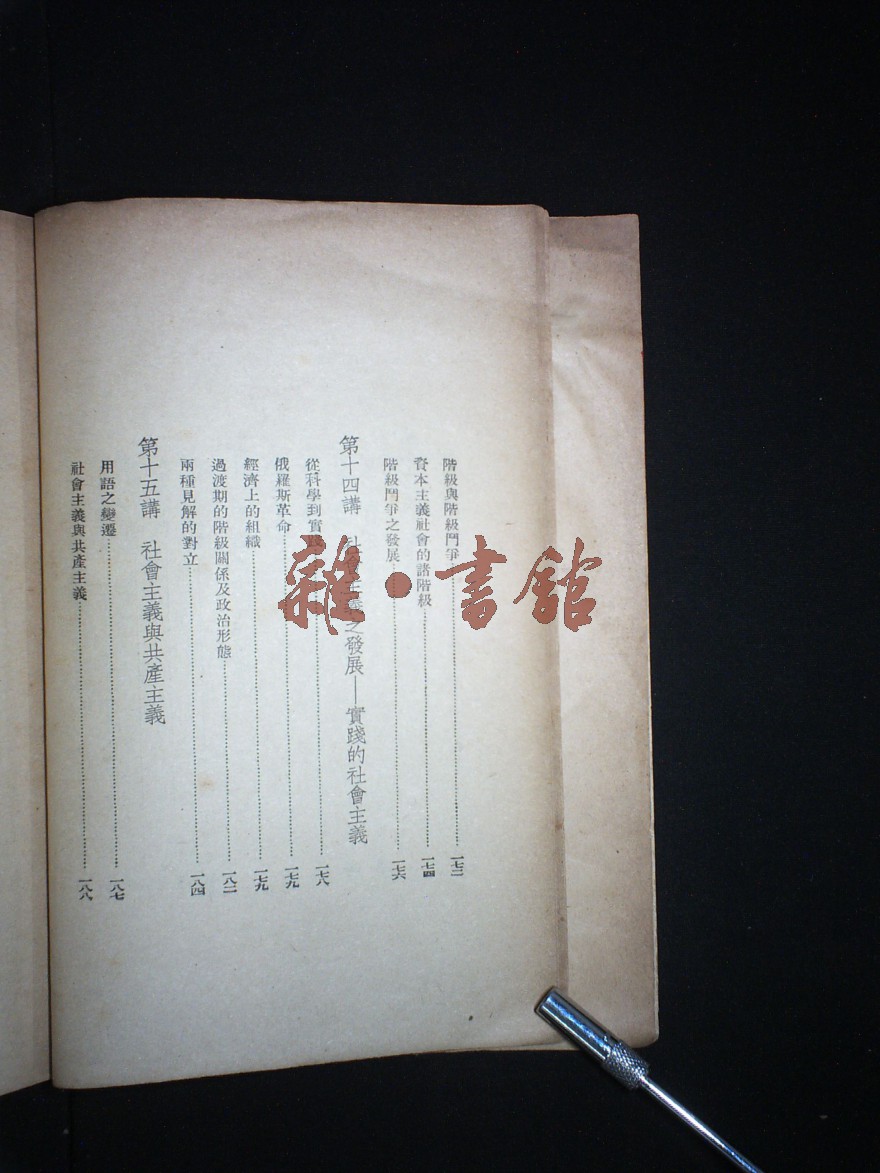 階級與階級鬥爭……一七二
資本主義社會的諸階級……一七四
階級鬥爭之發展……一七六
第十四講 社會主義之發展——實踐的社會主義
從科學到實踐……一七八
俄羅斯革命……一七九
經濟上的組織……一七九
過渡期的階級關係及政治形態……一八二
兩種見解的對立……一八四
第十五講 社會主義與共產主義
用語之變遷……一八七
社會主義與共產主義……一八八
雜·書館